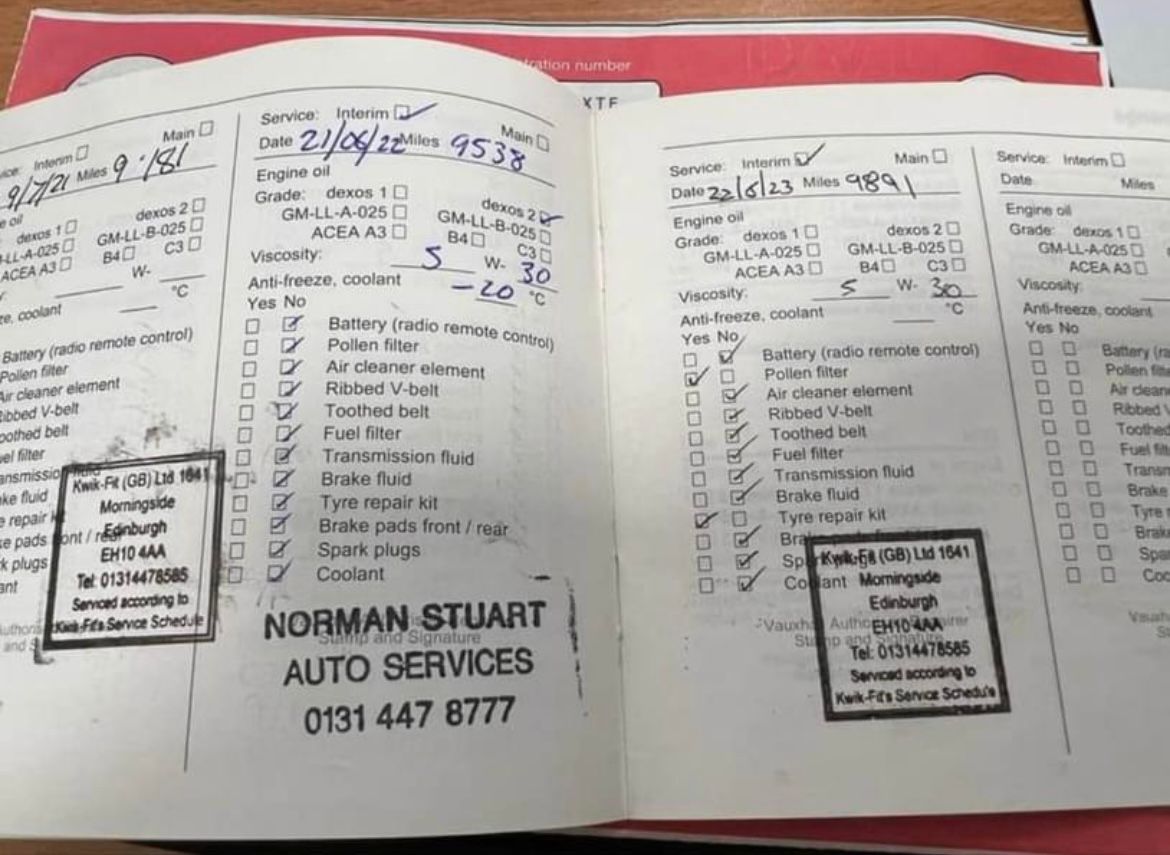 tration number
XTF
Main
Interim
9/7/21 Miles 9
dexos 2
dexos 1
GM-LL-B-025
LL-A-025
C3
B4
ACEA A3
W-
°C
coolant
Battery (radio remote control)
Pollen filter
Air cleaner element
Ribbed V-belt
Kwik-Fit (GB) Ltd 1641
Morningside
Edinburgh
EH10 4AA
Tel: 01314478585
Serviced according to
Kwik-Fit's Service Schedule
Service: Interim Main
Date 21/06/22 Miles 9538
Engine oil
Grade: dexos 1 dexos 2
GM-LL-A-025 GM-LL-B-025
ACEA A3 B4 C3
Viscosity: 5 W- 30
Anti-freeze, coolant -20 °C
Yes No
Battery (radio remote control)
Pollen filter
Air cleaner element
Ribbed V-belt
Toothed belt
Fuel filter
Transmission fluid
Brake fluid
Tyre repair kit
Brake pads front / rear
Spark plugs
Coolant
Stamp and Signature
NORMAN STUART
AUTO SERVICES
0131 447 8777
Service: Interim Main
Date 22/6/23 Miles 9891
Engine oil
Grade: dexos 1 dexos 2
GM-LL-A-025 GM-LL-B-025
ACEA A3 B4 C3
Viscosity: 5 W- 30
Anti-freeze, coolant °C
Yes No
Battery (radio remote control)
Pollen filter
Air cleaner element
Ribbed V-belt
Toothed belt
Fuel filter
Transmission fluid
Brake fluid
Tyre repair kit
Coolant
Stamp and Signature
Kwik-Fit (GB) Ltd 1641
Morningside
Edinburgh
EH10 4AA
Tel: 01314478585
Serviced according to
Kwik-Fit's Service Schedule
Service: Interim
Date Miles
Engine oil
Grade: dexos 1
GM-LL-A-025
ACEA A3
Viscosity:
Anti-freeze, coolant
Yes No
Battery (ra
Pollen filte
Air clean
Ribbed V
Toothed
Fuel filt
Transm
Brake
Tyre r
Brak
Spa
Coo